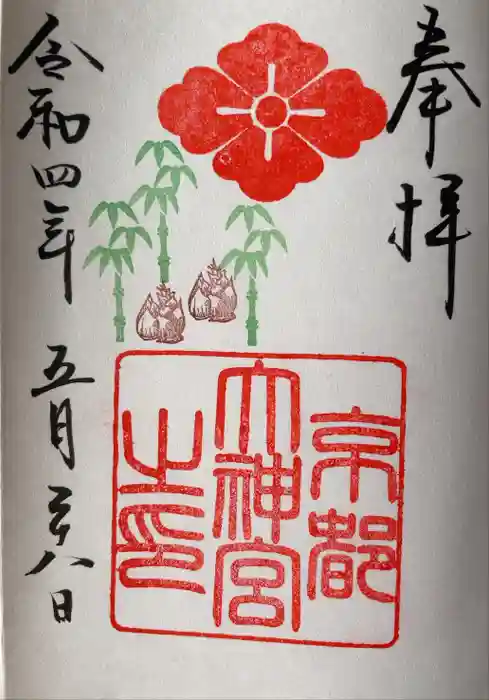 奉拝
京都
大神宮
之印
令和四年 五月二十八日